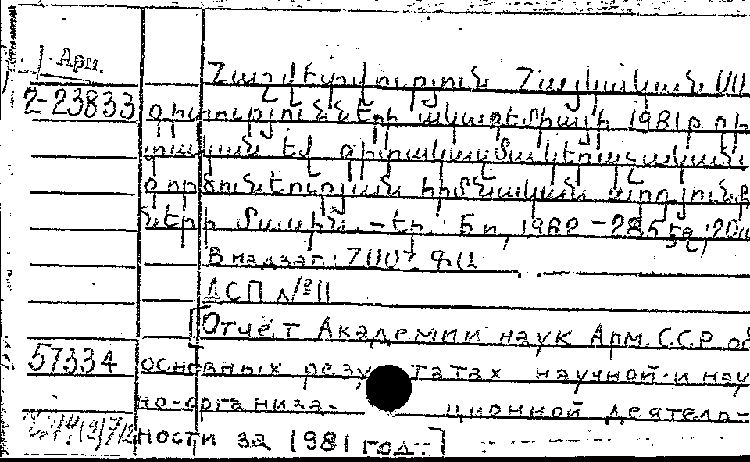 Арм.
Հաշվետվություն Հայկական ՍՍ
2-23833 գիտությունների ակադեմիայի 1981թ. գի
տական և գիտակազմակերպչական
գործունեության հիմնական արդյունք
ների մասին. – Եր.: Б и, 1982 – 285 էջ; 20սմ
В надзаг.: ՀՍՍՀ ԳԱ
ДСП №11
[Отчёт Академии наук Арм. ССР об
57334 основных резу татах научной и нау
но-организа- ционной деятель-
ности за 1981 год.]